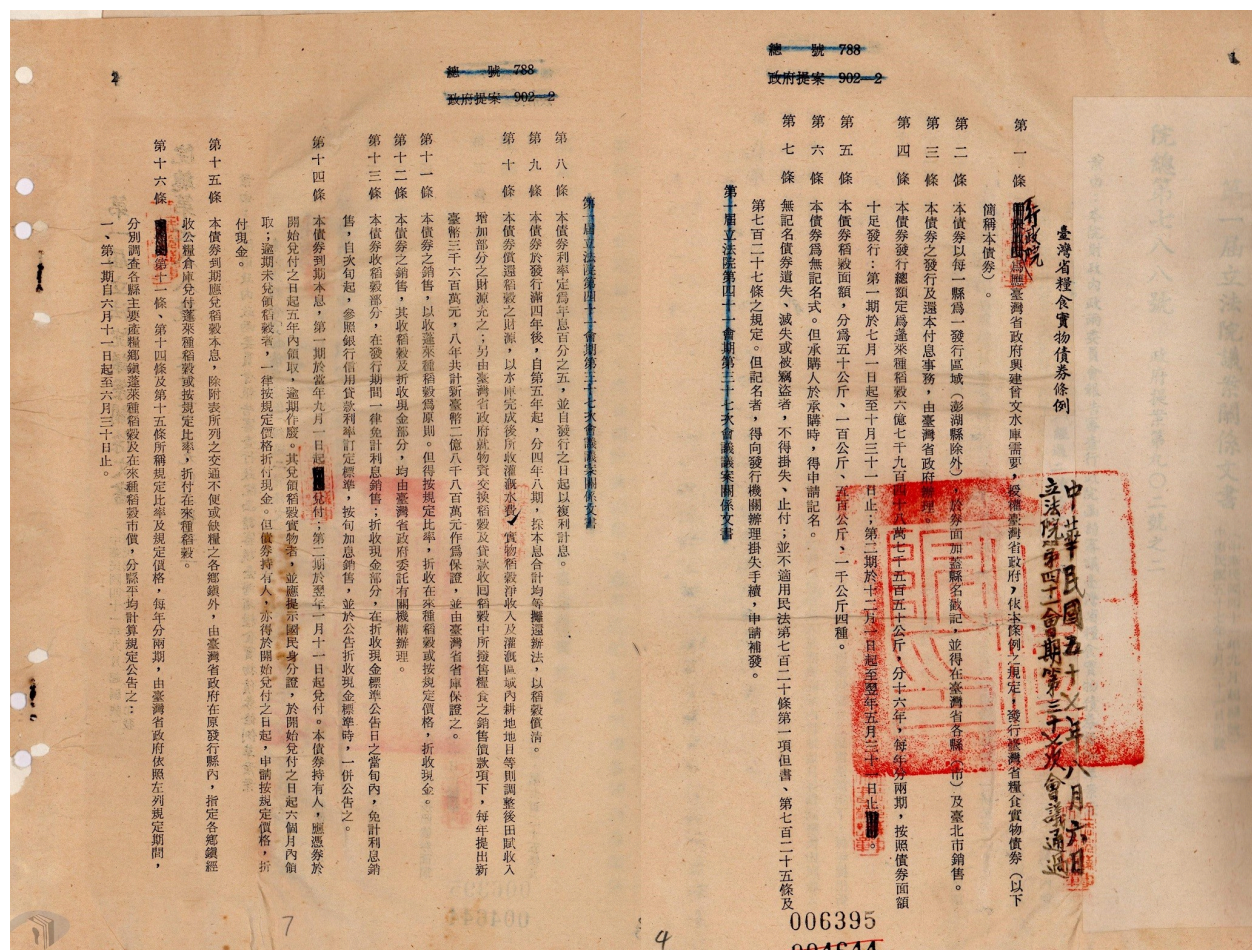 1
總號 788
政府提案 902—2
臺灣省糧食實物債券條例
中華民國五十七年八月六日
立法院第四十一會期第三十七次會議通過
第一條 行政院為應臺灣省政府興建曾文水庫需要，授權臺灣省政府，依本條例之規定，發行臺灣省糧食實物債券（以下
簡稱本債券）。
第二條 本債券以每一縣爲一發行區域（澎湖縣除外），於券面加蓋縣名戳記，並得在臺灣省各縣（市）及臺北市銷售。
第三條 本債券之發行及還本付息事務，由臺灣省政府辦理。
第四條 本債券發行總額定爲蓬來種稻穀六億七千九百四十八萬七千五百五十公斤，分十六年，每年分兩期，按照債券面額
十足發行：第一期於七月一日起至十月三十一日止；第二期於十二月一日起至翌年五月三十一日止。
第五條 本債券稻穀面額，分爲五十公斤、一百公斤、五百公斤、一千公斤四種。
第六條 本債券爲無記名式。但承購人於承購時，得申請記名。
第七條 無記名債券遺失、滅失或被竊盜者，不得掛失、止付；並不適用民法第七百二十條第一項但書、第七百二十五條及
第七百二十七條之規定。但記名者，得向發行機關辦理掛失手續，申請補發。
第一屆立法院第四十一會期第三十七次會議議案關係文書
006395
4
2
總號 788
政府提案 902—2
第一屆立法院第四十一會期第三十七次會議議案關係文書
第八條 本債券利率定爲年息百分之五，並自發行之日起以複利計息。
第九條 本債券於發行滿四年後，自第五年起，分四年八期，採本息合計均等攤還辦法，以稻穀償清。
第十條 本債券償還稻穀之財源，以水庫完成後所收灌漑水費，實物稻穀淨收入及灌漑區域內耕地地目等則調整後田賦收入
增加部分之財源充之；另由臺灣省政府就物資交換稻穀及貸款收回稻穀中所撥售糧食之銷售價款項下，每年提出新
臺幣三千六百萬元，八年共計新臺幣二億八千八百萬元作爲保證，並由臺灣省省庫保證之。
第十一條 本債券之銷售，以收蓬來種稻穀爲原則。但得按規定比率，折收在來種稻穀或按規定價格，折收現金。
第十二條 本債券之銷售，其收稻穀及折收現金部分，均由臺灣省政府委託有關機構辦理。
第十三條 本債券收稻穀部分，在發行期間一律免計利息銷售；折收現金部分，在折收現金標準公告日之當旬內，免計利息銷
售，自次旬起，參照銀行信用貸款利率訂定標準，按旬加息銷售，並於公告折收現金標準時，一併公告之。
第十四條 本債券到期本息，第一期於當年九月一日起兌付；第二期於翌年一月十一日起兌付。本債券持有人，應憑券於
開始兌付之日起五年內領取，逾期作廢。其兌領稻穀實物者，並應提示國民身分證，於開始兌付之日起六個月內領
取；逾期未兌領稻穀者，一律按規定價格折付現金。但債券持有人，亦得於開始兌付之日起，申請按規定價格，折
付現金。
第十五條 本債券到期應兌付稻穀本息，除附表所列之交通不便或缺糧之各鄉鎭外，由臺灣省政府在原發行縣內，指定各鄉鎭經
收公糧倉庫兌付蓬來種稻穀或按規定比率，折付在來種稻穀。
第十六條 第十一條、第十四條及第十五條所稱規定比率及規定價格，每年分兩期，由臺灣省政府依照左列規定期間，
分別調查各縣主要產糧鄉鎭蓬來種稻穀及在來種稻穀市價，分縣平均計算規定公告之：
一、第一期自六月十一日起至六月三十日止。
7